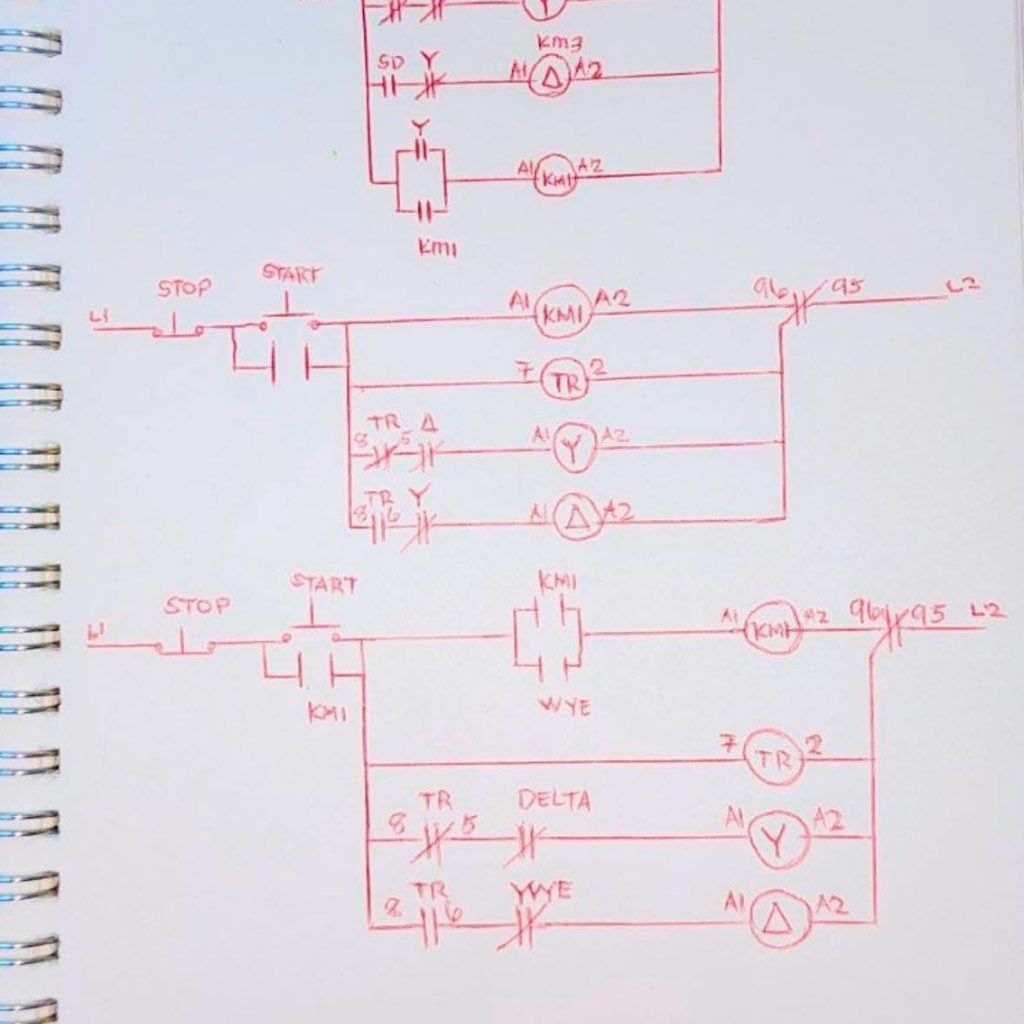 Y
KM3
SD Y
A1 Δ A2
Y
A1 KM1 A2
KM1
STOP START
L1 A1 KM1 A2 96 95 L2
7 TR 2
TR Δ
8 5 A1 Y A2
TR Y
8 6 A1 Δ A2
STOP START KM1
L1 A1 KM1 A2 96 95 L2
KM1 WYE
7 TR 2
TR DELTA
8 5 A1 Y A2
TR WYE
8 6 A1 Δ A2